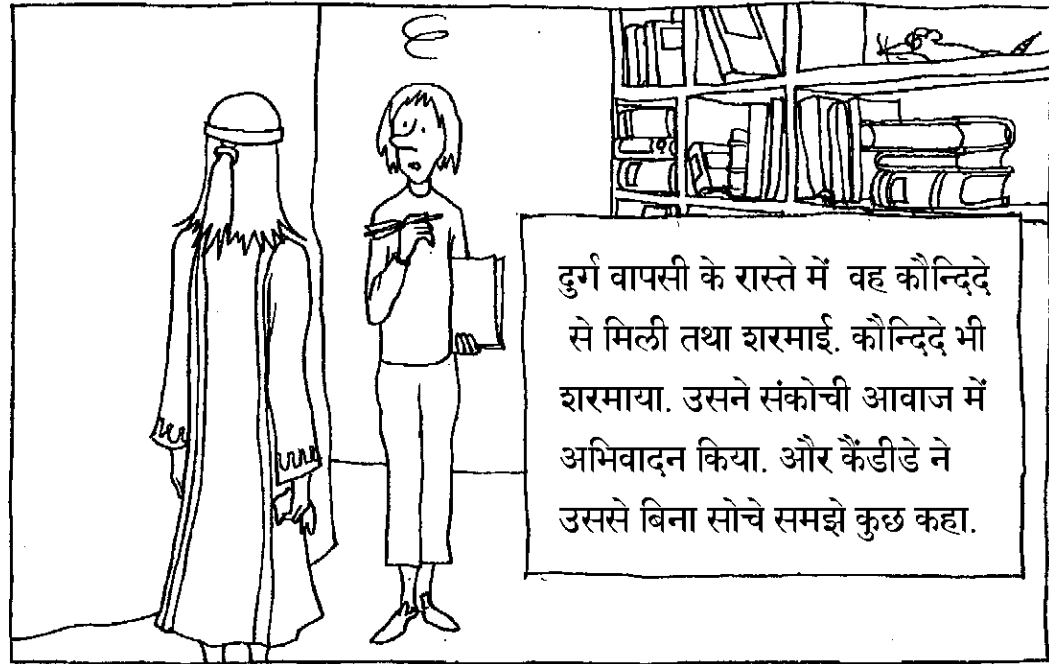 दुर्ग वापसी के रास्ते में वह कौन्दिदे
से मिली तथा शरमाई. कौन्दिदे भी
शरमाया. उसने संकोची आवाज में
अभिवादन किया. और कैंडीडे ने
उससे बिना सोचे समझे कुछ कहा.